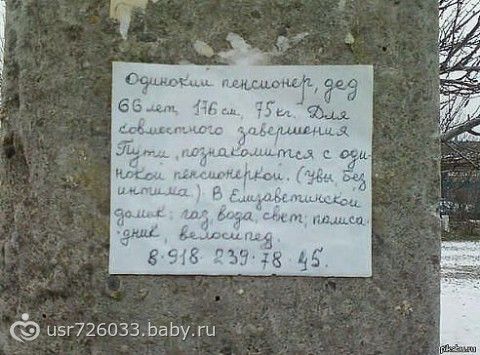 Одинокий пенсионер, дед
66 лет, 176 см, 75 кг. Для
совмостного завершения
Пути, познакомится с оди-
нокой пенсионеркой. (Увы, без
интима.) В Елизаветинской
домик: газ, вода, свет, полиса-
дник, велосипед.
8·918·239·78·45.
usr726033.baby.ru
pikabu.ru